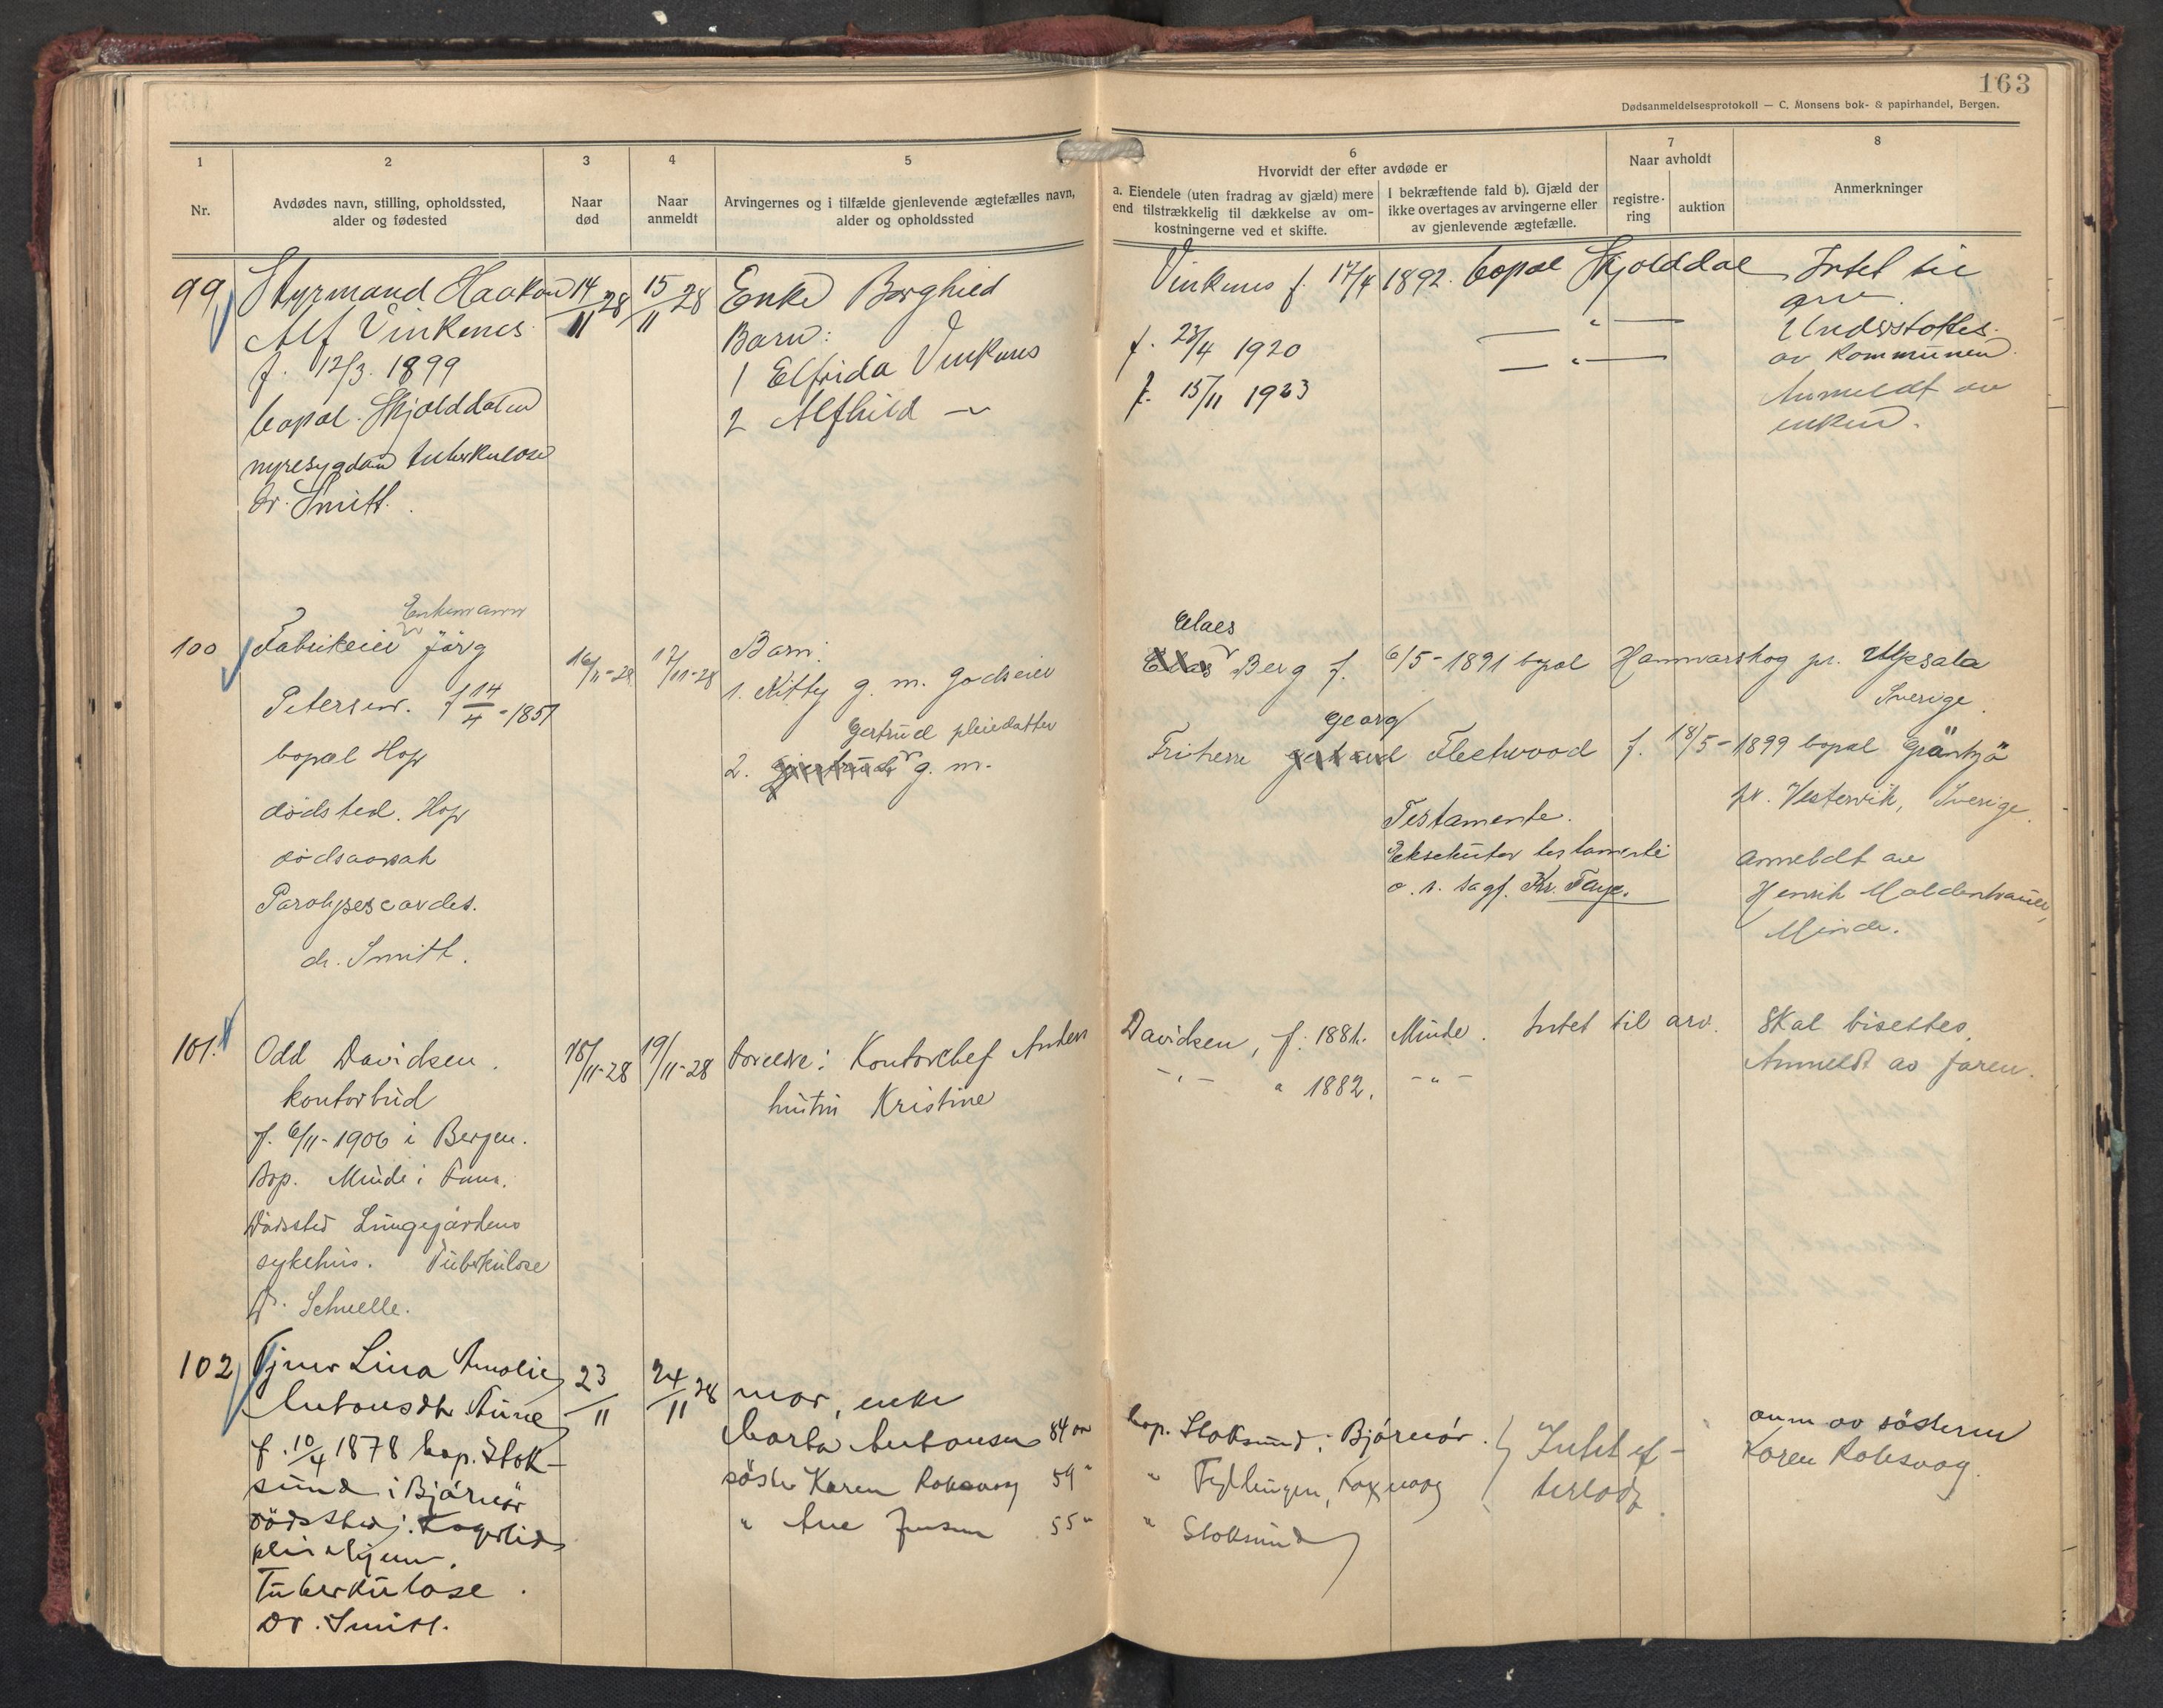 163
Dødsanmeldelsesprotokoll — C. Monsens bok- & papirhandel, Bergen.
1
Nr.
2
Avdødes navn, stilling, opholdssted,
alder og fødested
3
Naar
død
4
Naar
anmeldt
5
Arvingernes og i tilfælde gjenlevende ægtefælles navn,
alder og opholdssted
6
Hvorvidt der efter avdøde er
a. Eiendele (uten fradrag av gjæld) mere
end tilstrækkelig til dækkelse av om-
kostningerne ved et skifte.
I bekræftende fald b). Gjæld der
ikke overtages av arvingerne eller
av gjenlevende ægtefælle.
7
Naar avholdt
registre-
ring
auktion
8
Anmerkninger
99
Styrmand Haakon
Alf Vinkenes
f. 12/3. 1899
bopæl. Skjolddalen
nyresygdom tuberkulose
Dr. Smitt.
14/11 28
15/11 28
Enke Borghild
Barn:
1 Elfrida Vinkenes
2 Alfhild —
Vinkenes f. 17/4 1892. bopæl Skjolddal
f. 23/4 1920 — " —
f. 15/11 1923 — " —
Intet til
arv.
Understøttes
av kommunen.
Anmeldt av
enken.
100
Enkemann
Fabrikeier Jörg
Petersen. f 14/4 - 1857
bopæl Hop
dödsted. Hop
dödsaarsak
Paralyses cordes.
dr. Smitt.
16/11-28
17/11-28
Barn:
1. Kitty g. m. Godseier
Gertrud pleiedatter
2. g. m.
Claes
Berg f. 6/5 - 1891 bopæl Hammarskog pr. Upsala
Sverige.
Georg
Friherre Fleetwood f. 18/5 - 1899 bopæl Gränsjö
pr. Vestervik, Sverige.
Testamente.
Eksekutor testamenti
o. r. sagf. Kr. Faye.
Anmeldt av
Henrik Moldenhauer,
Minde.
101.
Odd Davidsen.
kontorbud
f. 6/11-1906 i Bergen.
Bop. Minde i Fana.
Dödsted Lungegårdens
sykehus. Tuberkulose
Dr. Schnelle.
18/11-28
19/11-28
Foreldre: Kontorchef Anders
hustru Kristine
Davidsen, f. 1881. Minde. Intet til arv.
- " - " 1882. - " -
Skal bisettes.
Anmeldt av faren.
102
Tjener Lina Amalie
Antonsdtr Aune
f. 10/4 1878 bop. Stok-
sund i Bjørnør
dödssted
pleiehjem.
Tuberkulose.
Dr. Smitt.
23/11
24/11 28
mor, enke
Marta Antonsen 84 år
söster Karen Roksvag 59 "
" Ane Jensen 55 "
bop. Stoksund i Bjørnør.
"
" Stoksund
Intet ef-
terladt
anm av söstern
Karen Roksvag.